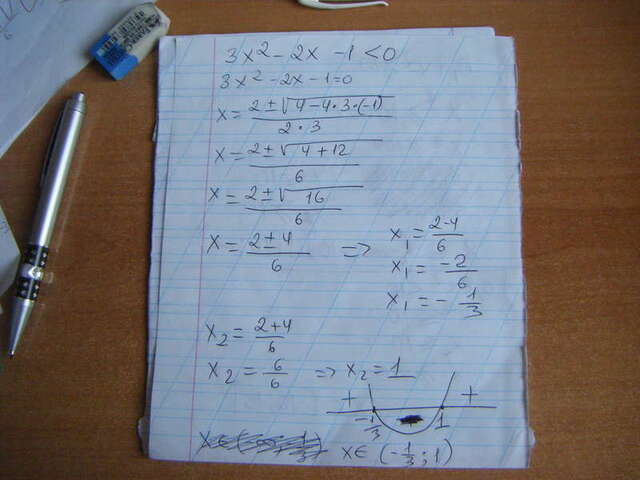 3x² - 2x - 1 < 0
3x² - 2x - 1 = 0
x = (2 ± √(4 - 4·3·(-1)))/(2·3)
x = (2 ± √(4 + 12))/6
x = (2 ± √16)/6
x = (2 ± 4)/6 => x₁ = (2-4)/6
x₁ = -2/6
x₁ = - 1/3
x₂ = (2+4)/6
x₂ = 6/6 => x₂ = 1
+ +
-1/3 1
x ∈ (-1/3 ; 1)